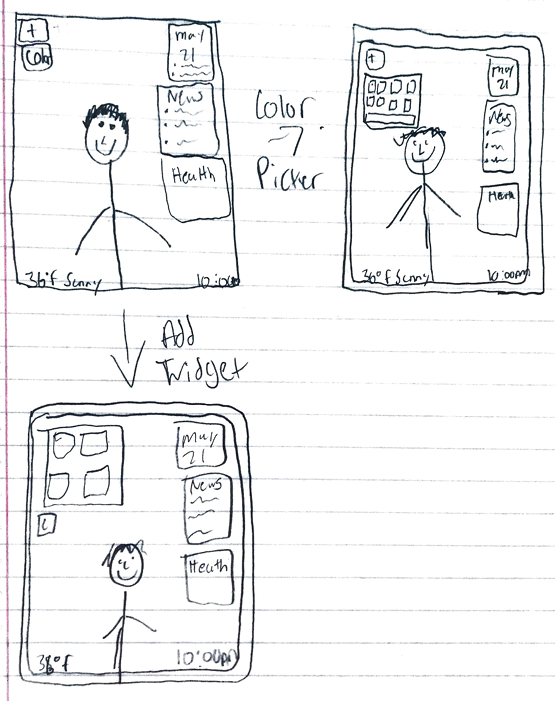 +
Color
May
21
News
Health
36°F Sunny
10:00
Color
Picker
+
May
21
News
Health
36°F Sunny
10:00pm
Add
Widget
May
21
News
C
Health
38°F
10:00pm